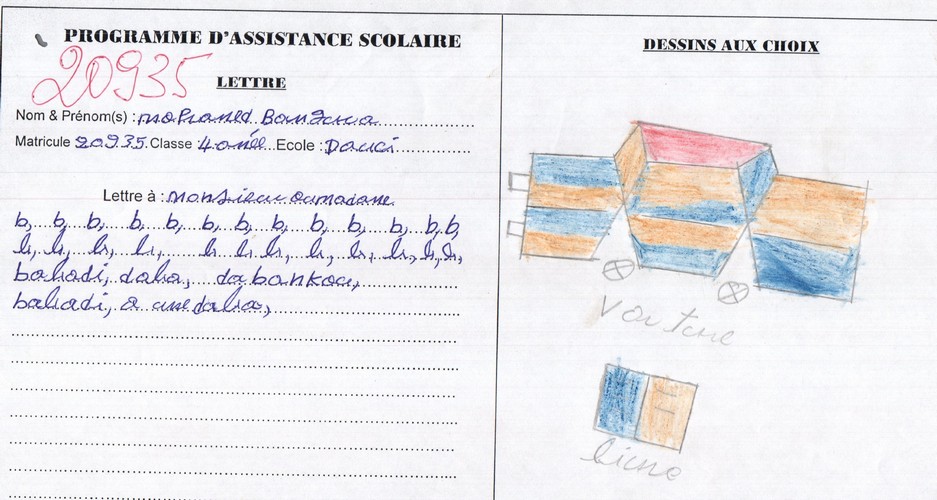 PROGRAMME D'ASSISTANCE SCOLAIRE
20935
LETTRE
Nom & Prénom(s) : mohamed Bangoura
Matricule 20935 Classe 4 année Ecole : Dauci
Lettre à : monsieur ou madame
b, b, b, b, b, b, b, b, b, b, b, b,
h, h, h, h, h, h, h, h, h, h, h, h,
babadi, daba, dabankou,
babadi, a une daba,
DESSINS AUX CHOIX
Voiture
Livre